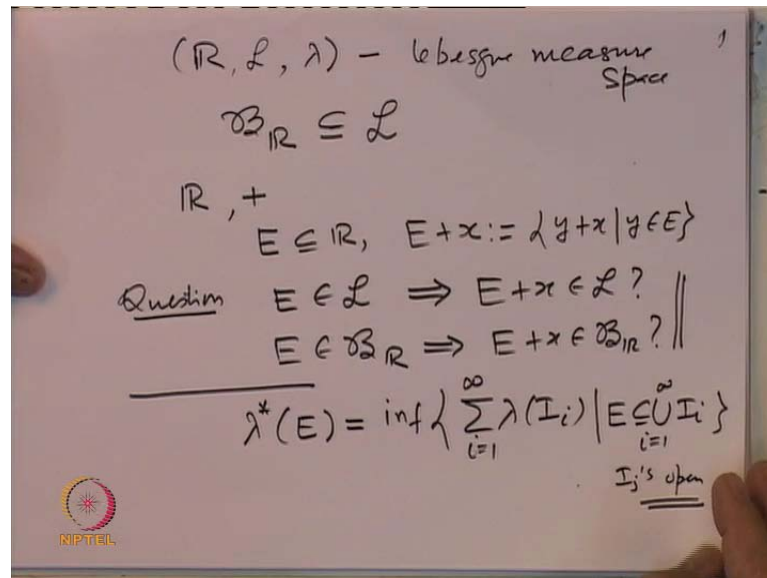 (ℝ, ℒ, λ) – Lebesgue measure 1
Space
𝔅_ℝ ⊆ ℒ
ℝ, +
E ⊆ ℝ, E + x := {y + x | y ∈ E}
Question E ∈ ℒ ⇒ E + x ∈ ℒ ?
E ∈ 𝔅_ℝ ⇒ E + x ∈ 𝔅_ℝ ? ||
λ*(E) = inf { ∑_{i=1}^∞ λ(I_i) | E ⊆ ⋃_{i=1}^∞ I_i }
I_j's open
NPTEL